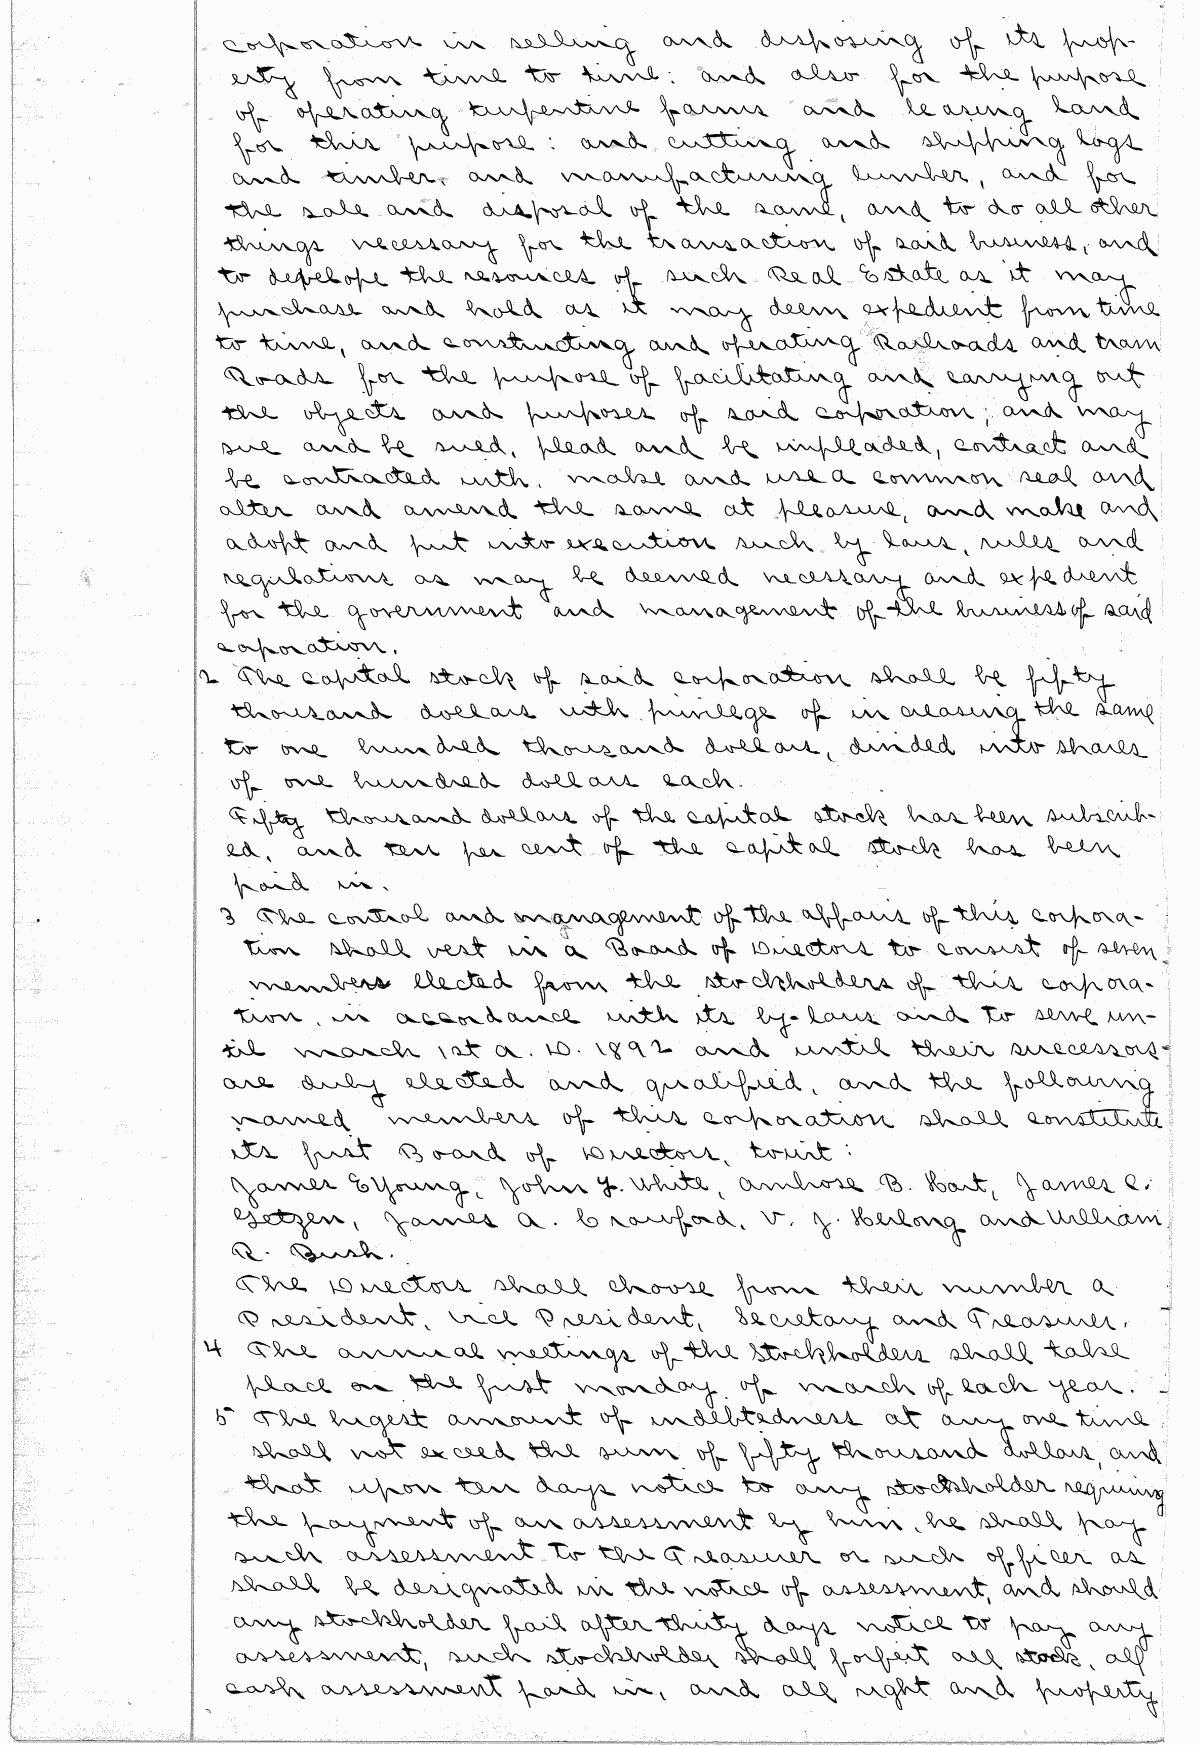 corporation in selling and disposing of its prop-
erty from time to time: and also for the purpose
of operating turpentine farms and leasing land
for this purpose: and cutting and shipping logs
and timber, and manufacturing lumber, and for
the sale and disposal of the same, and to do all other
things necessary for the transaction of said business, and
to develope the resources of such Real Estate as it may
purchase and hold as it may deem expedient from time
to time, and constructing and operating Railroads and tram
Roads for the purpose of facilitating and carrying out
the objects and purposes of said corporation; and may
sue and be sued, plead and be impleaded, contract and
be contracted with, make and use a common seal and
alter and amend the same at pleasure, and make and
adopt and put into execution such by laws, rules and
regulations as may be deemed necessary and expedient
for the government and management of the business of said
corporation.
2 The capital stock of said corporation shall be fifty
thousand dollars with privilege of increasing the same
to one hundred thousand dollars, divided into shares
of one hundred dollars each.
Fifty thousand dollars of the capital stock has been subscrib-
ed, and ten per cent of the capital stock has been
paid in.
3 The control and management of the affairs of this corpora-
tion shall vest in a Board of Directors to consist of seven
members elected from the stockholders of this corpora-
tion, in accordance with its by-laws and to serve un-
til march 1st A. D. 1892 and until their successors
are duly elected and qualified, and the following
named members of this corporation shall constitute
its first Board of Directors, towit:
James E Young, John F. White, Ambrose B. Hart, James C.
Getzen, James A. Crawford, V. J. Herlong and William
R. Bush.
The Directors shall choose from their number a
President, Vice President, Secretary and Treasurer.
4 The annual meetings of the Stockholders shall take
place on the first monday of march of each year.
5 The higest amount of indebtedness at any one time
shall not exceed the sum of fifty thousand dollars, and
that upon ten days notice to any stockholder requiring
the payment of an assessment by him, he shall pay
such assessment to the Treasurer or such officer as
shall be designated in the notice of assessment, and should
any stockholder fail after thirty days notice to pay any
assessment, such stockholder shall forfeit all stock, all
cash assessment paid in, and all right and property